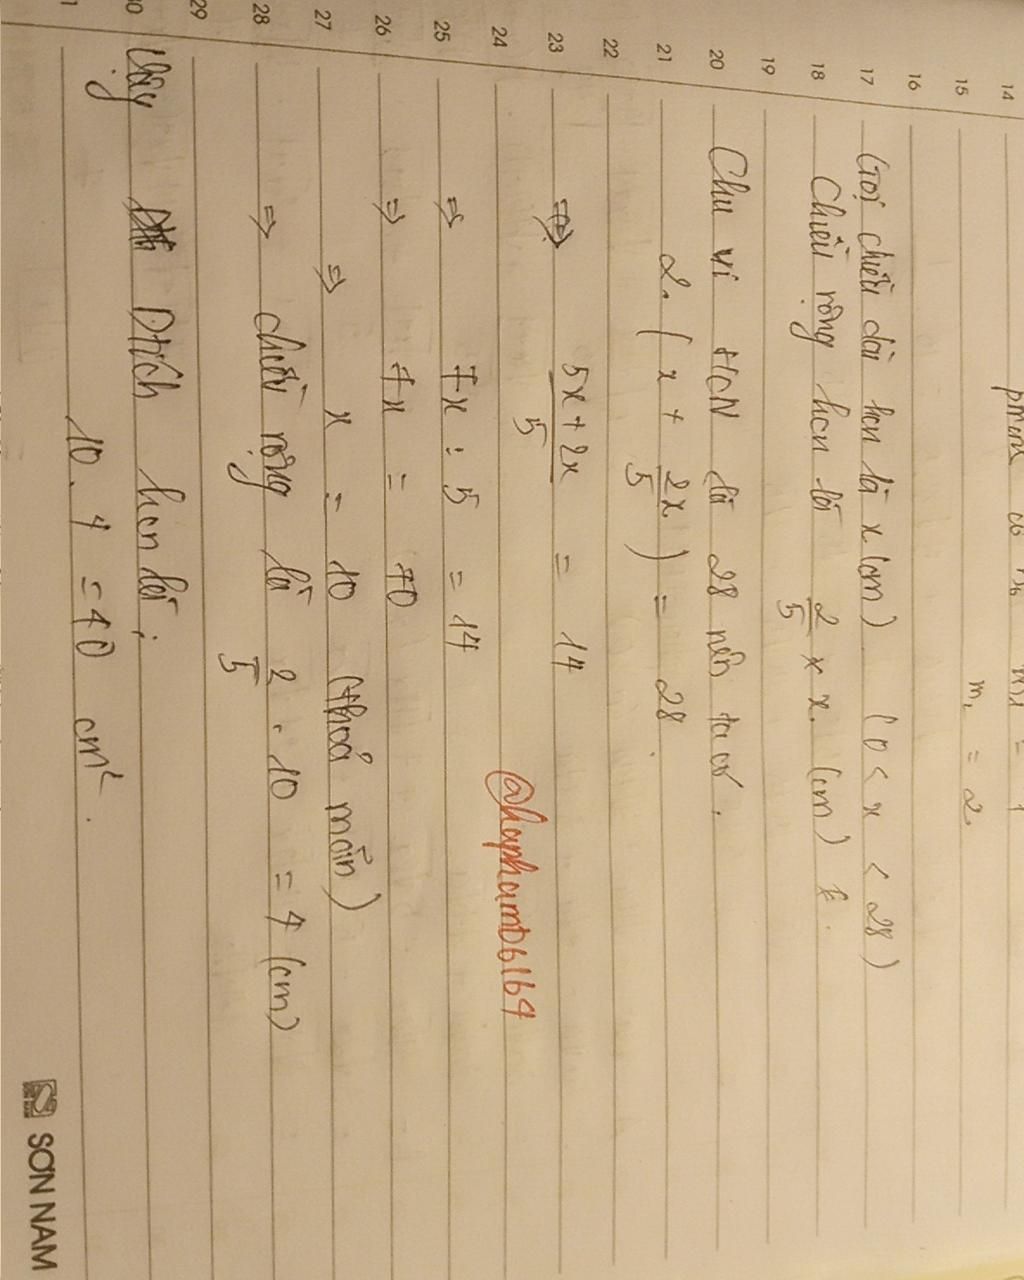 14
15 m, = 2
16
17 Gọi chiều dài hcn là x (cm) (0 < x < 28)
18 Chiều rộng hcn là 2/5 x x. (cm)
19
20 Chu vi HCN là 28 nên ta có.
21 2. ( x + 2x/5 ) = 28.
22
23 ⇒ 5x + 2x / 5 = 14
24 @haphamt06164
25 ⇒ 7x : 5 = 14
26 ⇒ 7x = 70
27 ⇒ x = 10 (thoả mãn)
28 ⇒ chiều rộng là 2/5 . 10 = 4 (cm)
29
30 Vậy Dtích hcn là;
10 . 4 = 40 cm²
SƠN NAM